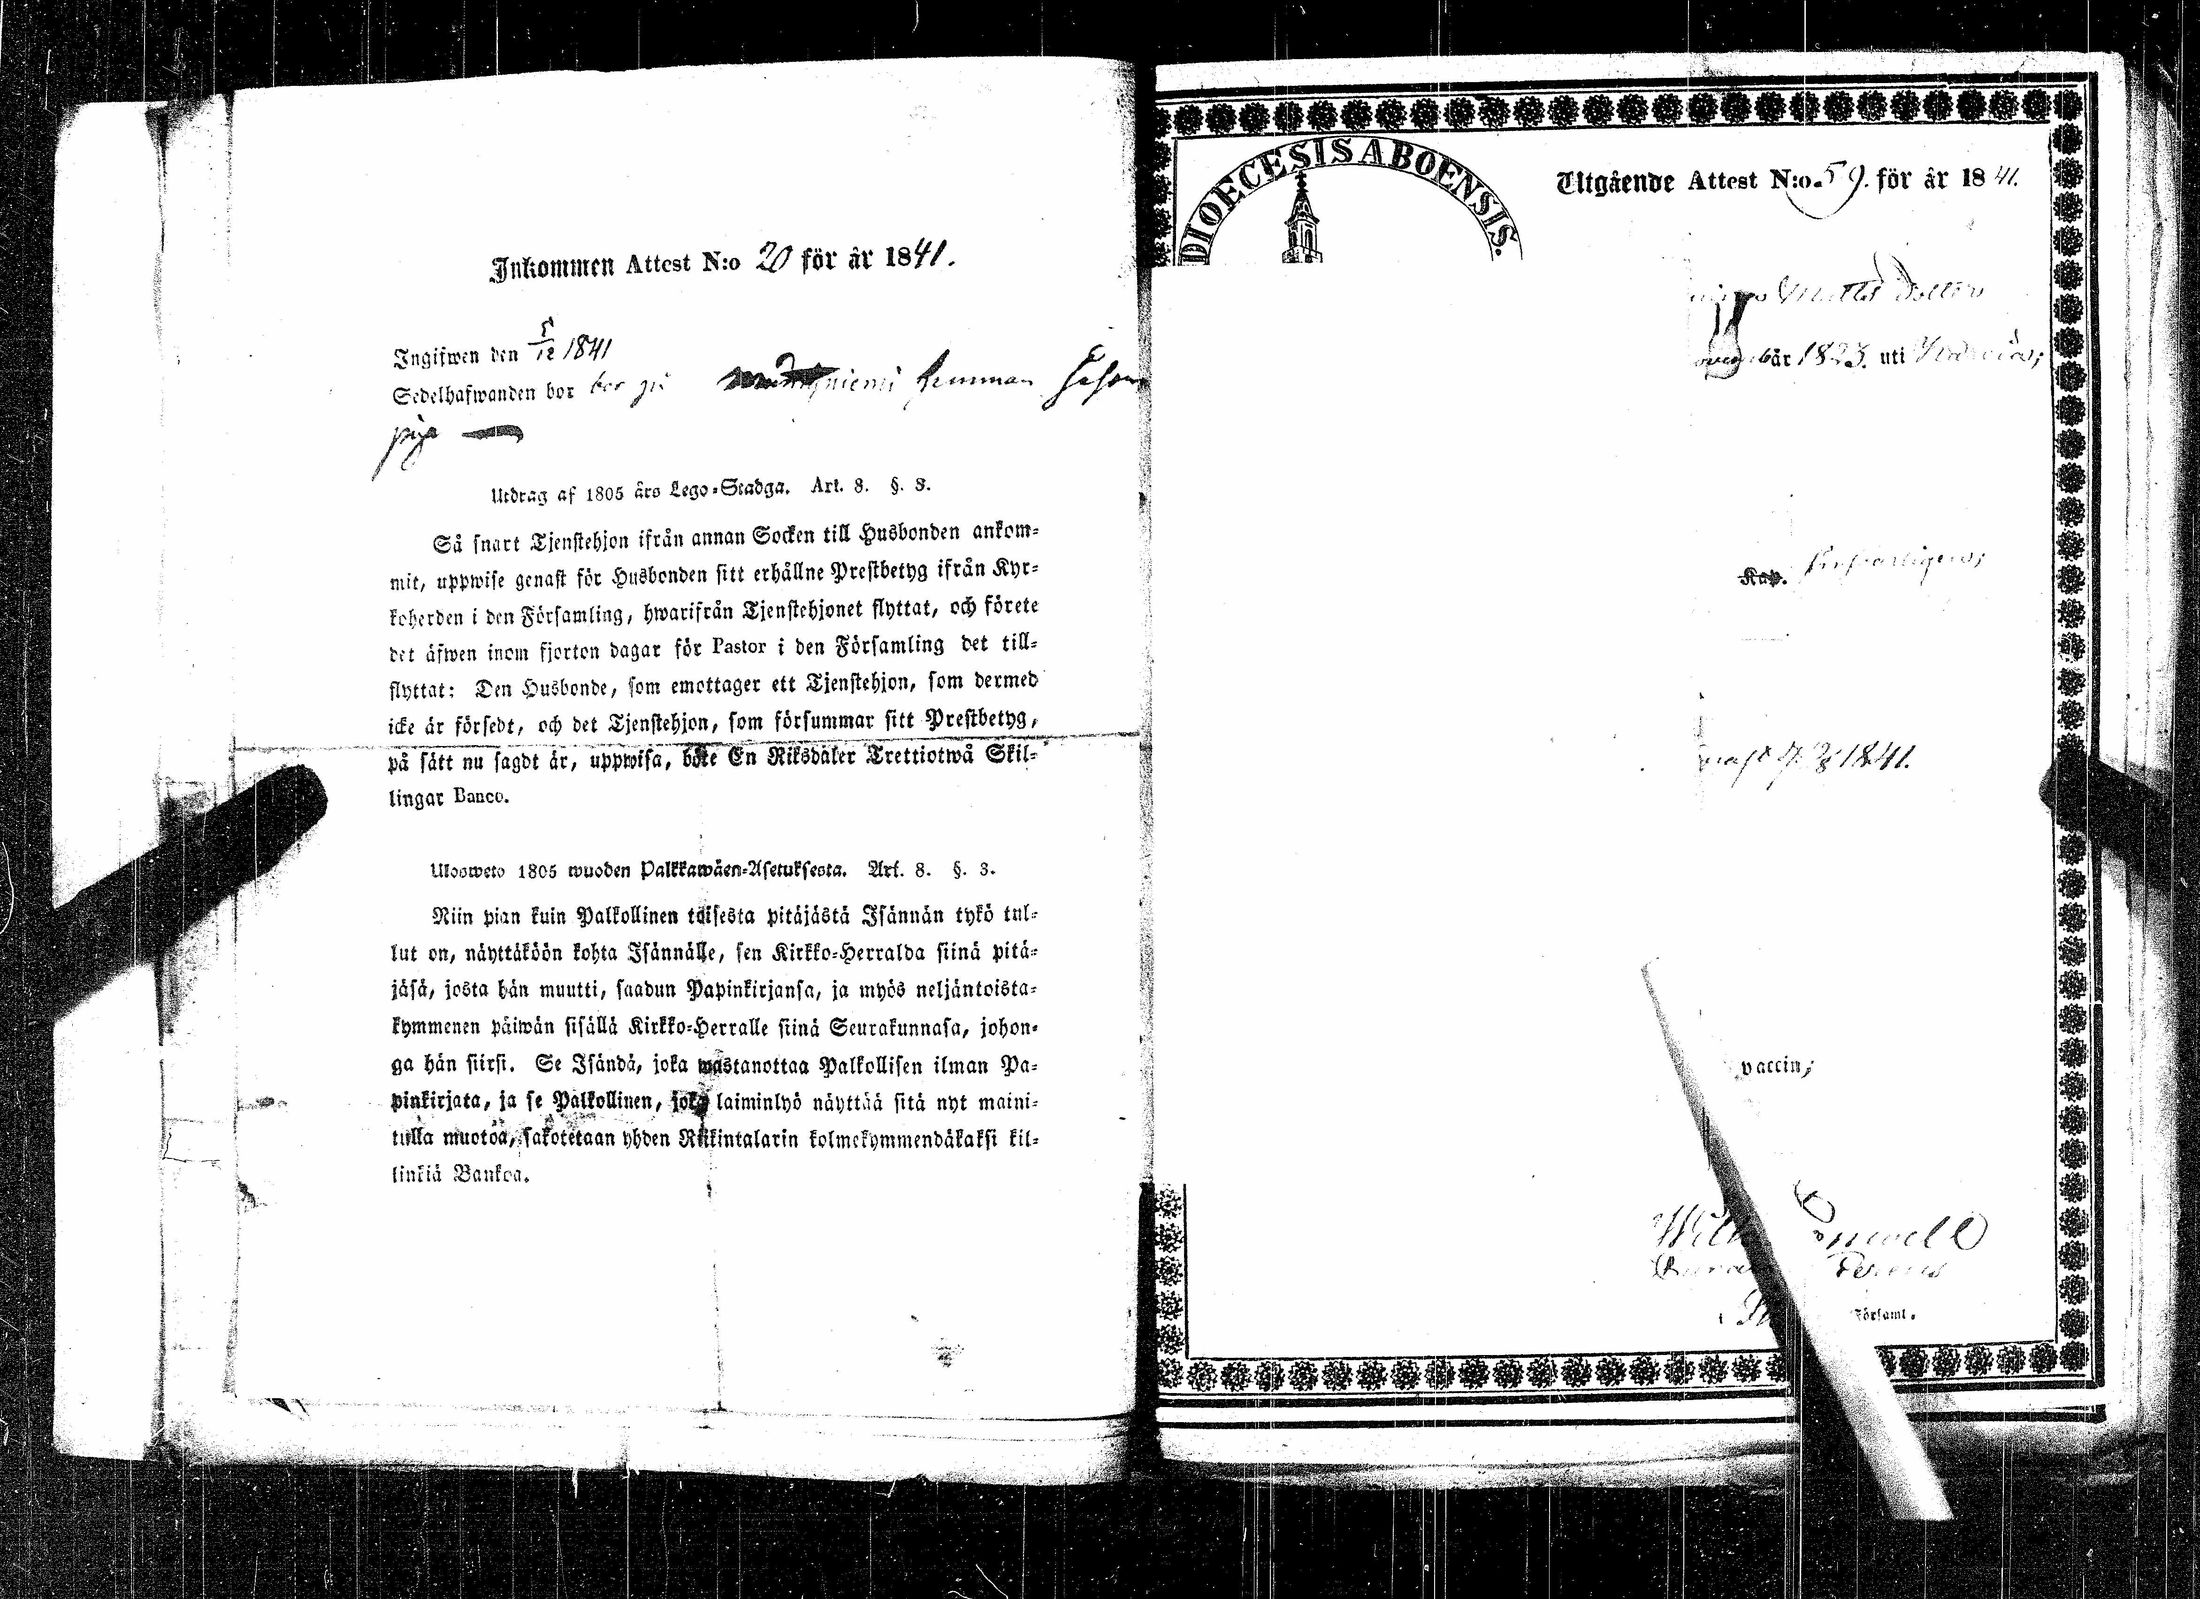 Inkommen Attest N:o 20 för år 1841.
Ingifwen den 5/12 1841
Sedelhafwanden bor bor på niemi hemman
piga
Utdrag af 1805 års Lego-Stadga. Art. 8. §. 3.
Så snart Tjenstehjon ifrån annan Socken till Husbonden ankom-
mit, uppwise genast för Husbonden sitt erhållne Prestbetyg ifrån Kyr-
koherden i den Församling, hwarifrån Tjenstehjonet flyttat, och förete
det äfwen inom fjorton dagar för Pastor i den Församling det till-
flyttat: Den Husbonde, som emottager ett Tjenstehjon, som dermed
icke är försedt, och det Tjenstehjon, som försummar sitt Prestbetyg,
på sätt nu sagdt är, uppwisa, böte En Riksdaler Trettiotwå Skil-
lingar Banco.
Ulosweto 1805 wuoden Palkkawäen-Asetuksesta. Art. 8. §. 3.
Niin pian kuin Palkollinen toisesta pitäjästä Isännän tykö tul-
lut on, näyttäköön kohta Isännälle, sen Kirkko-Herralda siinä pitä-
jäsä, josta hän muutti, saadun Papinkirjansa, ja myös neljäntoista-
kymmenen päiwän sisällä Kirkko-Herralle siinä Seurakunnasa, johon-
ga hän siirsi. Se Isändä, joka wastanottaa Palkollisen ilman Pa-
pinkirjata, ja se Palkollinen, joka laiminlyö näyttää sitä nyt maini-
tulla muotoa, sakotetaan yhden Riikintalarin kolmekymmendäkaksi kil-
linkiä Bankoa.
DIOECESIS ABOENSIS.
Utgående Attest N:o 59. för år 1841.
Matts
år 1823. uti
Kap.
1841.
vaccin;
Församl.